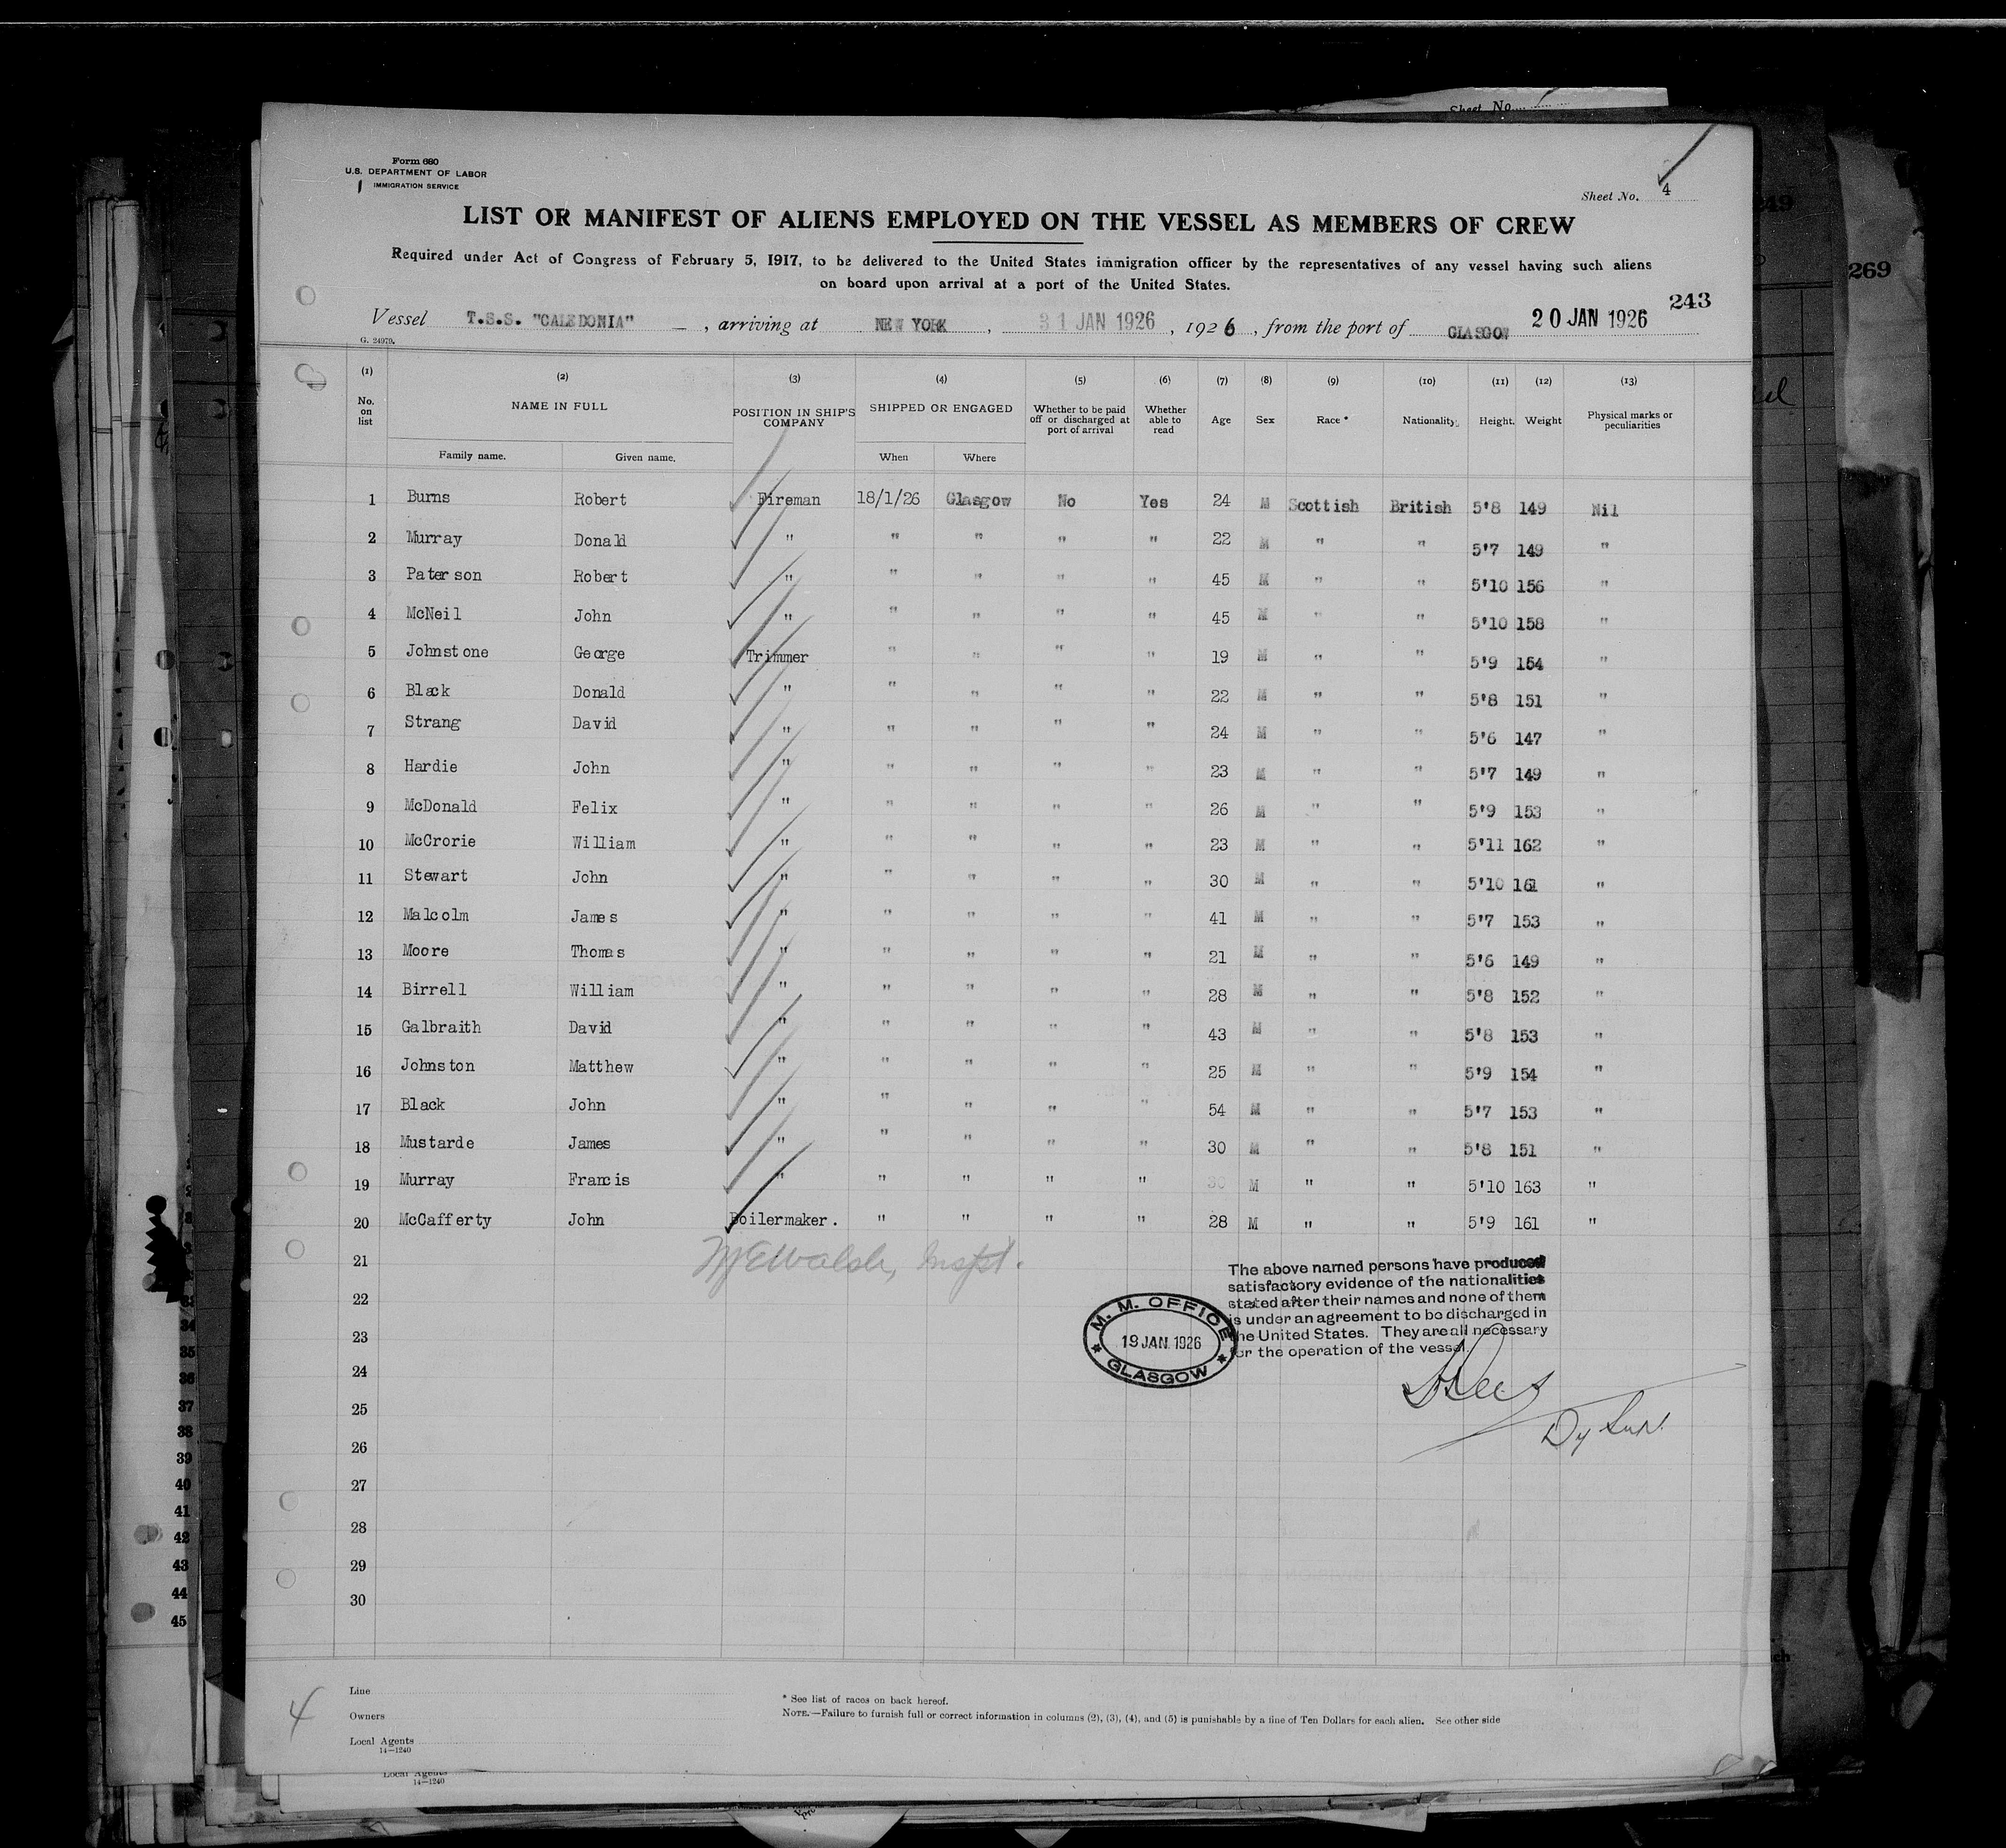 Sheet No.
Form 680
U.S. DEPARTMENT OF LABOR
IMMIGRATION SERVICE
Sheet No. 4
LIST OR MANIFEST OF ALIENS EMPLOYED ON THE VESSEL AS MEMBERS OF CREW
Required under Act of Congress of February 5, 1917, to be delivered to the United States immigration officer by the representatives of any vessel having such aliens
on board upon arrival at a port of the United States.
243
Vessel T.S.S. "CALEDONIA" , arriving at NEW YORK , 31 JAN 1926 , 1926 , from the port of GLASGOW 20 JAN 1926
G. 24979.
(1) (2) (3) (4) (5) (6) (7) (8) (9) (10) (11) (12) (13)
No. on list NAME IN FULL POSITION IN SHIP'S COMPANY SHIPPED OR ENGAGED Whether to be paid off or discharged at port of arrival Whether able to read Age Sex Race * Nationality Height Weight Physical marks or peculiarities
Family name. Given name. When Where
1 Burns Robert Fireman 18/1/26 Glasgow No Yes 24 M Scottish British 5'8 149 Nil
2 Murray Donald " " " " " 22 M " " 5'7 149 "
3 Paterson Robert " " " " " 45 M " " 5'10 156 "
4 McNeil John " " " " " 45 M " " 5'10 158 "
5 Johnstone George Trimmer " " " " 19 M " " 5'9 154 "
6 Black Donald " " " " " 22 M " " 5'8 151 "
7 Strang David " " " " " 24 M " " 5'6 147 "
8 Hardie John " " " " " 23 M " " 5'7 149 "
9 McDonald Felix " " " " " 26 M " " 5'9 153 "
10 McCrorie William " " " " " 23 M " " 5'11 162 "
11 Stewart John " " " " " 30 M " " 5'10 161 "
12 Malcolm James " " " " " 41 M " " 5'7 153 "
13 Moore Thomas " " " " " 21 M " " 5'6 149 "
14 Birrell William " " " " " 28 M " " 5'8 152 "
15 Galbraith David " " " " " 43 M " " 5'8 153 "
16 Johnston Matthew " " " " " 25 M " " 5'9 154 "
17 Black John " " " " " 54 M " " 5'7 153 "
18 Mustarde James " " " " " 30 M " " 5'8 151 "
19 Murray Francis " " " " " 30 M " " 5'10 163 "
20 McCafferty John Boilermaker. " " " " 28 M " " 5'9 161 "
21
22
23
24
25
26
27
28
29
30
Walsh, Inspt.
The above named persons have produced
satisfactory evidence of the nationalities
stated after their names and none of them
is under an agreement to be discharged in
the United States. They are all necessary
for the operation of the vessel.
M. M. OFFICE
19 JAN. 1926
GLASGOW
Line
Owners
Local Agents
14—1240
* See list of races on back hereof.
NOTE.—Failure to furnish full or correct information in columns (2), (3), (4), and (5) is punishable by a fine of Ten Dollars for each alien. See other side
4
Local Agents
14—1240
269
35
36
37
38
39
40
41
42
43
44
45